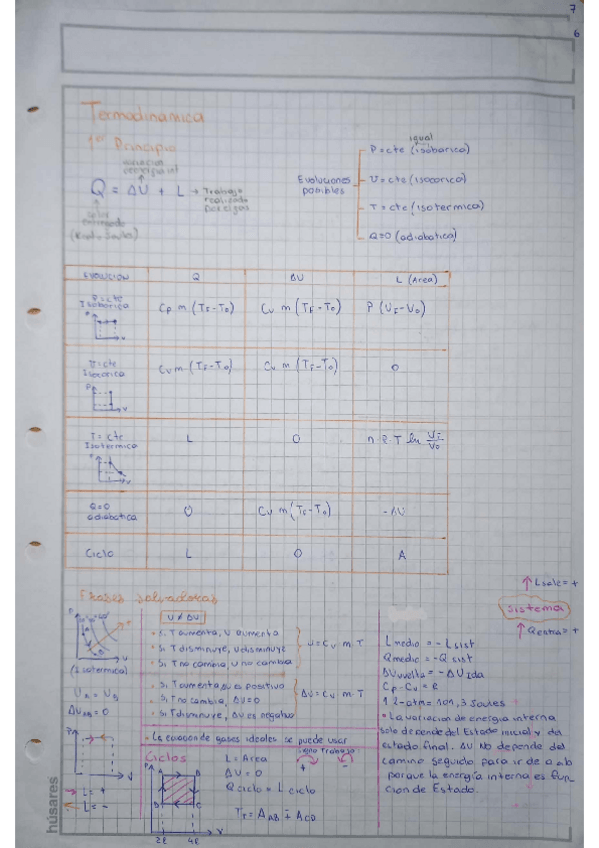 7
6
Termodinamica
1er Principio
variacion
energia int
Q = ΔU + L → Trabajo
realizado
por el gas
calor
(Kcal - Joules)
Evoluciones
posibles
igual
P = cte (isobarica)
V = cte (isocorica)
T = cte (isotermica)
Q=0 (adiabatica)
EVOLUCION Q ΔU L (Area)
P = cte
Isobarica
P
V
Cp m (TF - T0) Cv m (TF - T0) P (VF - V0)
V = cte
Isocorica
P
V
Cv m (TF - T0) Cv m (TF - T0) 0
T = cte
Isotermica
P
V
L 0 n R T ln VF/V0
Q=0
adiabatica
0 Cv m (TF - T0) - ΔU
Ciclo L 0 A
Frases salvadoras
P
V
(Isotermica)
UA = UB
ΔUAB = 0
P
V
→ L = +
← L = -
U ≠ ΔU
• Si T aumenta, U aumenta
• Si T disminuye, U disminuye
• Si T no cambia, U no cambia
U = Cv m · T
• Si T aumenta ΔU es positivo
• Si T no cambia, ΔU = 0
• Si T disminuye, ΔU es negativo
ΔU = Cv m · T
- La ecuacion de gases ideales se puede usar
Ciclos
P
A B
D C
2l 4l V
L = Area
ΔU = 0
Q ciclo = L ciclo
Signo Trabajo
+ -
↑ L sale = +
Sistema
↑ Q entra = +
L medio = - L sist
Q medio = - Q sist
ΔU vuelta = - ΔU ida
Cp - Cv = R
1 l-atm = 101,3 Joules
• La variacion de energia interna
solo depende del Estado inicial y del
estado final. ΔU No depende del
camino seguido para ir de a a b
porque la energía interna es fun-
cion de Estado.
húsares